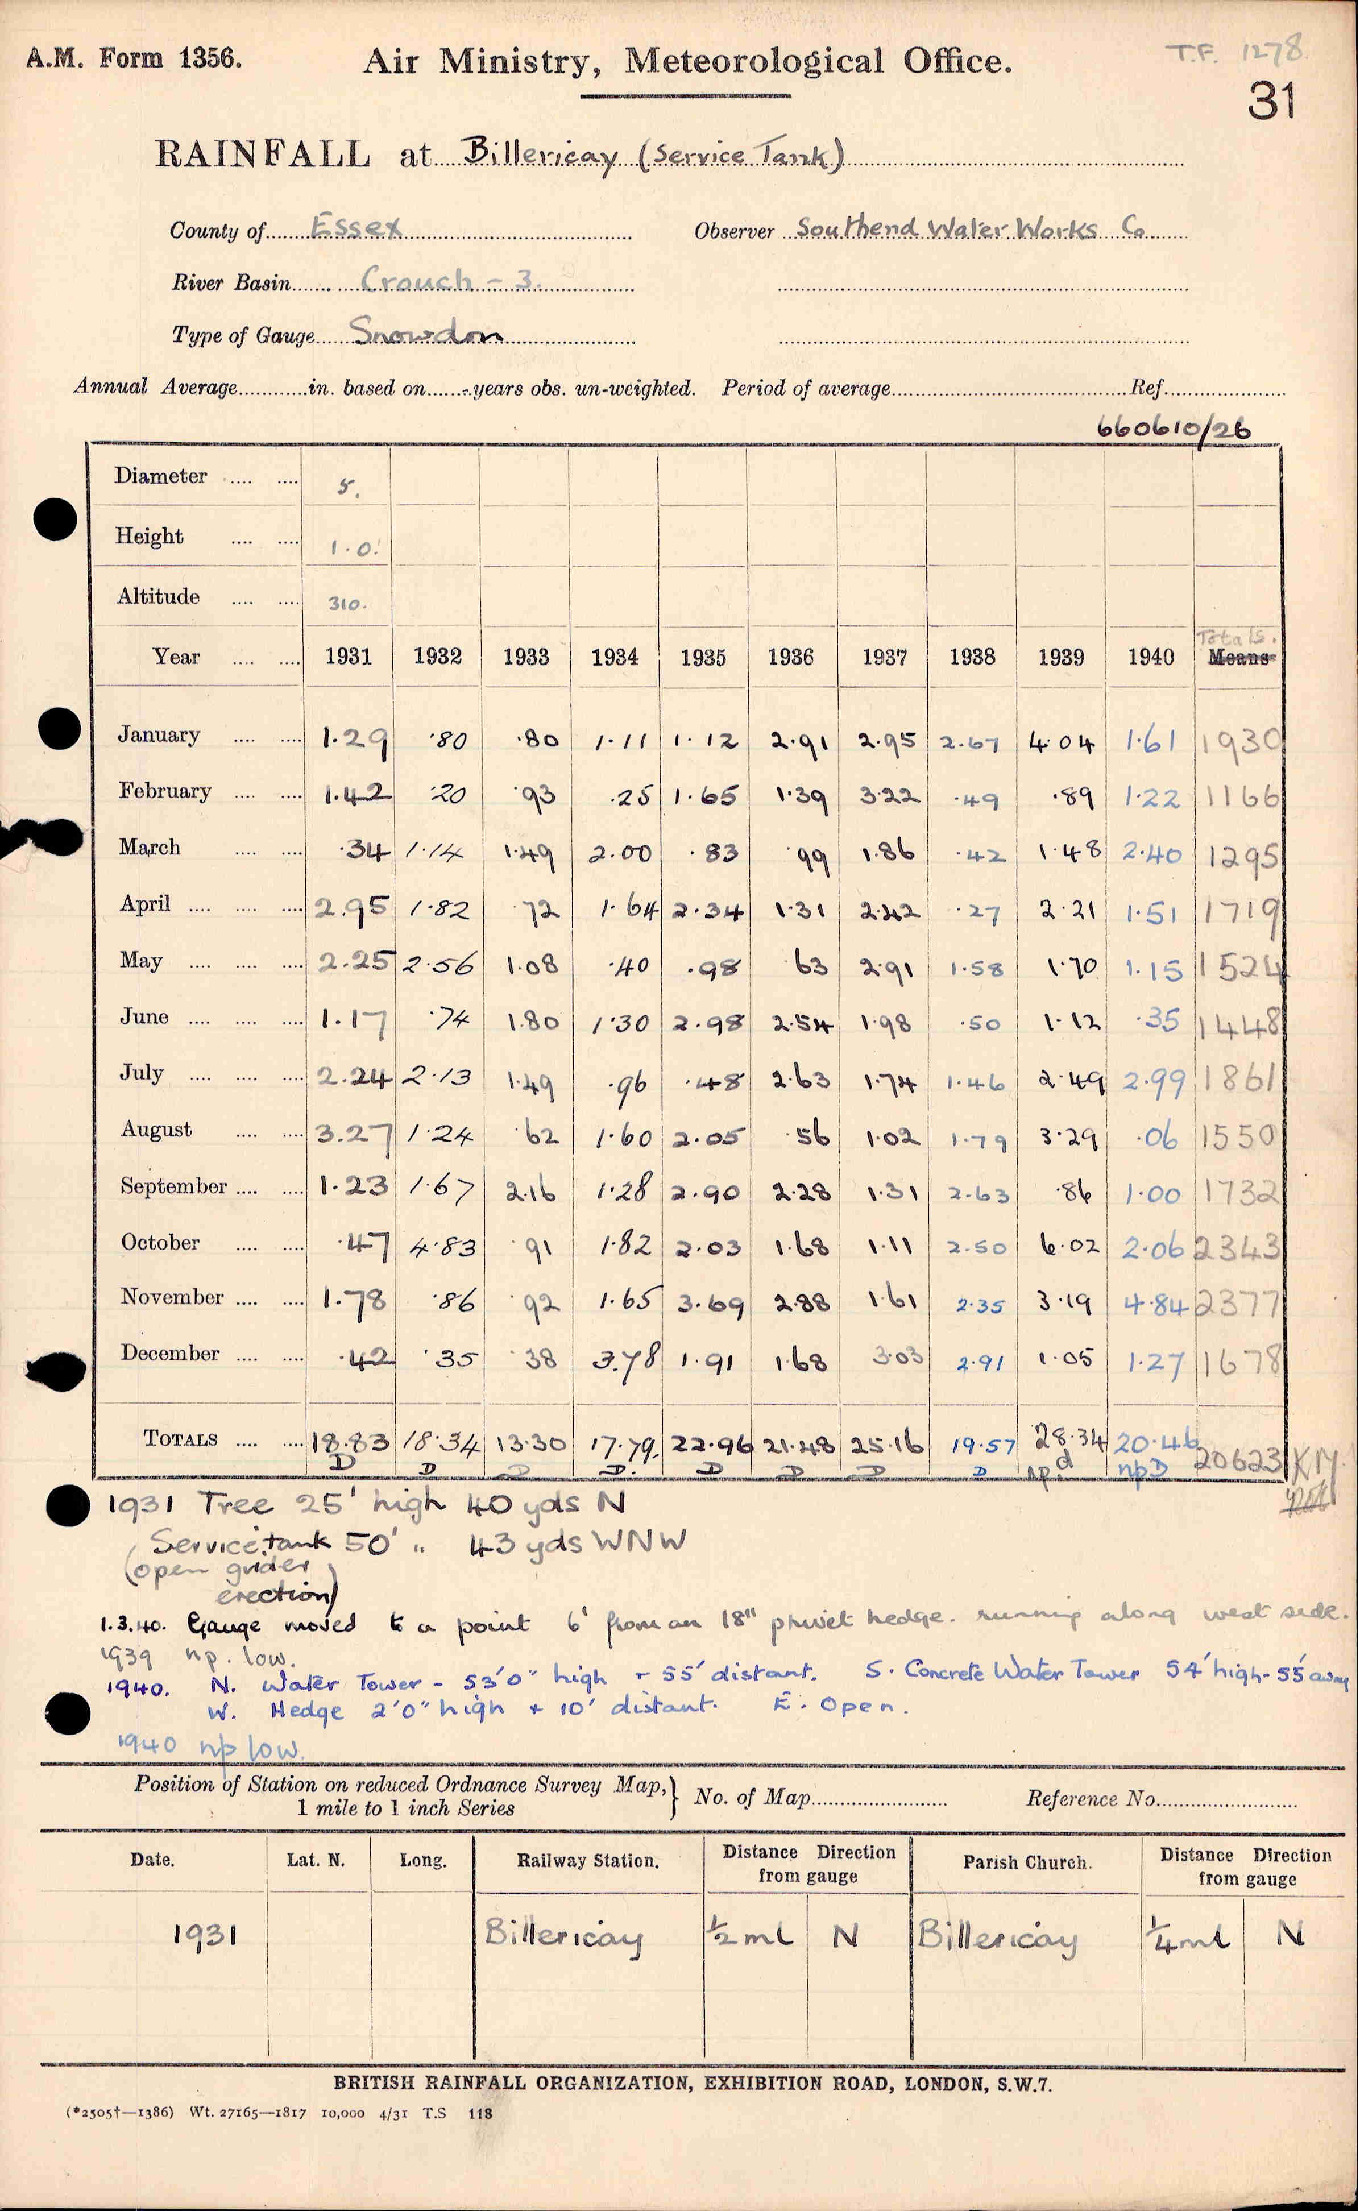 A.M. Form 1356. Air Ministry, Meteorological Office. T.F. 1278
31
RAINFALL at Billericay (Service Tank)
County of Essex Observer Southend Water Works Co
River Basin Crouch - 3.
Type of Gauge Snowdon
Annual Average in. based on years obs. un-weighted. Period of average Ref.
660610/26
Diameter 5.
Height 1.0.
Altitude 310.
Totals.
Year 1931 1932 1933 1934 1935 1936 1937 1938 1939 1940 Means
January 1.29 .80 .80 1.11 1.12 2.91 2.95 2.67 4.04 1.61 1930
February 1.42 .20 .93 .25 1.65 1.39 3.22 .49 .89 1.22 1166
March .34 1.14 1.49 2.00 .83 .99 1.86 .42 1.48 2.40 1295
April 2.95 1.82 .72 1.64 2.34 1.31 2.42 .27 2.21 1.51 1719
May 2.25 2.56 1.08 .40 .98 .63 2.91 1.58 1.70 1.15 1524
June 1.17 .74 1.80 1.30 2.98 2.54 1.98 .50 1.12 .35 1448
July 2.24 2.13 1.49 .96 .48 2.63 1.74 1.46 2.49 2.99 1861
August 3.27 1.24 .62 1.60 2.05 .56 1.02 1.79 3.29 .06 1550
September 1.23 1.67 2.16 1.28 2.90 2.28 1.31 2.63 .86 1.00 1732
October .47 4.83 .91 1.82 2.03 1.68 1.11 2.50 6.02 2.06 2343
November 1.78 .86 .92 1.65 3.69 2.88 1.61 2.35 3.19 4.84 2377
December .42 .35 .38 3.78 1.91 1.68 3.03 2.91 1.05 1.27 1678
TOTALS 18.83 18.34 13.30 17.79. 22.96 21.48 25.16 19.57 28.34 20.46 20623 KM.
D D D D. D D D D npd npD
1931 Tree 25' high 40 yds N
Service tank 50' " 43 yds WNW
(open grider
erection)
1.3.40. Gauge moved to a point 6' from an 18" privet hedge. running along west side.
1939 np. low.
1940. N. Water Tower - 53'0" high + 55' distant. S. Concrete Water Tower 54' high - 55' away
W. Hedge 2'0" high + 10' distant. E. Open.
1940 np low.
Position of Station on reduced Ordnance Survey Map,} No. of Map Reference No.
1 mile to 1 inch Series
Date. Lat. N. Long. Railway Station. Distance Direction from gauge Parish Church. Distance Direction from gauge
1931 Billericay ½ ml N Billericay ¼ ml N
BRITISH RAINFALL ORGANIZATION, EXHIBITION ROAD, LONDON, S.W.7.
(*2505†—1386) Wt. 27165—1817 10,000 4/31 T.S 118